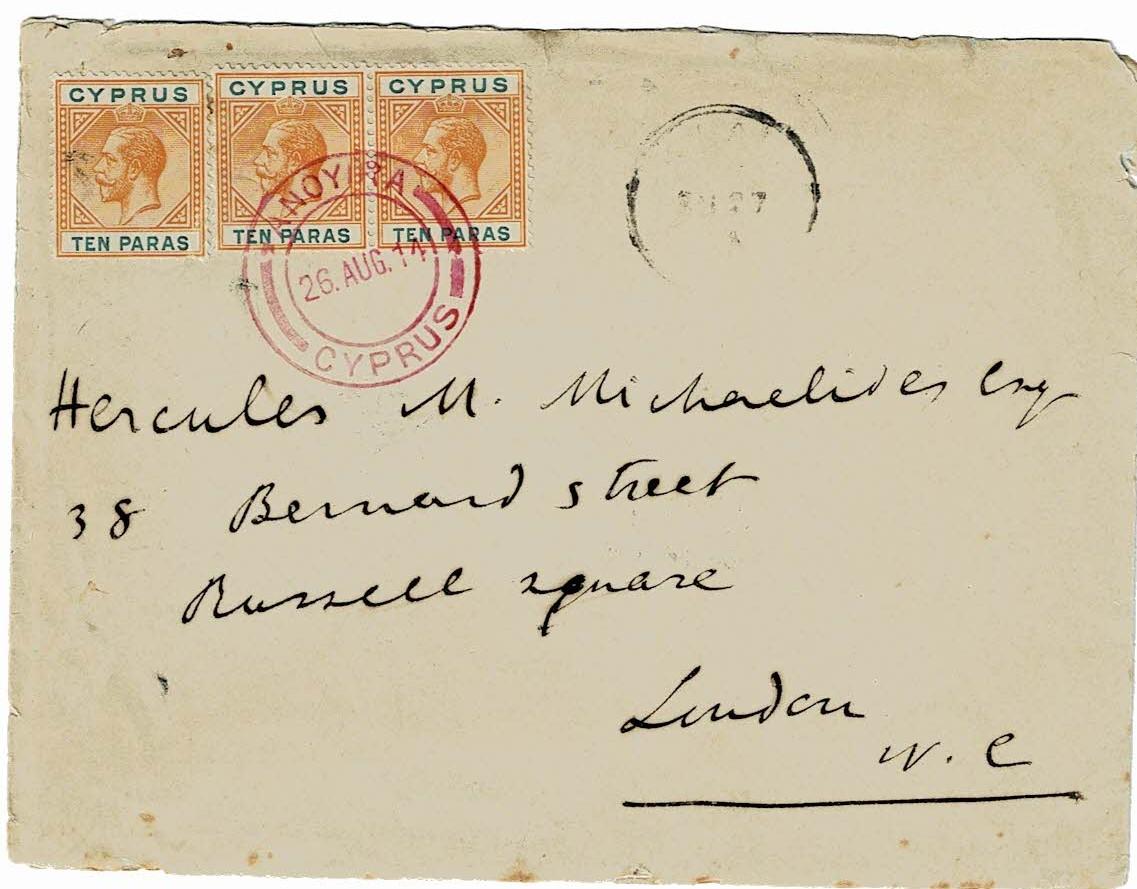 CYPRUS CYPRUS CYPRUS
TEN PARAS TEN PARAS TEN PARAS
ANOYRA
26. AUG. 14
CYPRUS
27
Hercules M. Michaelides Esq
38 Bernard street
Russell square
London
W. C